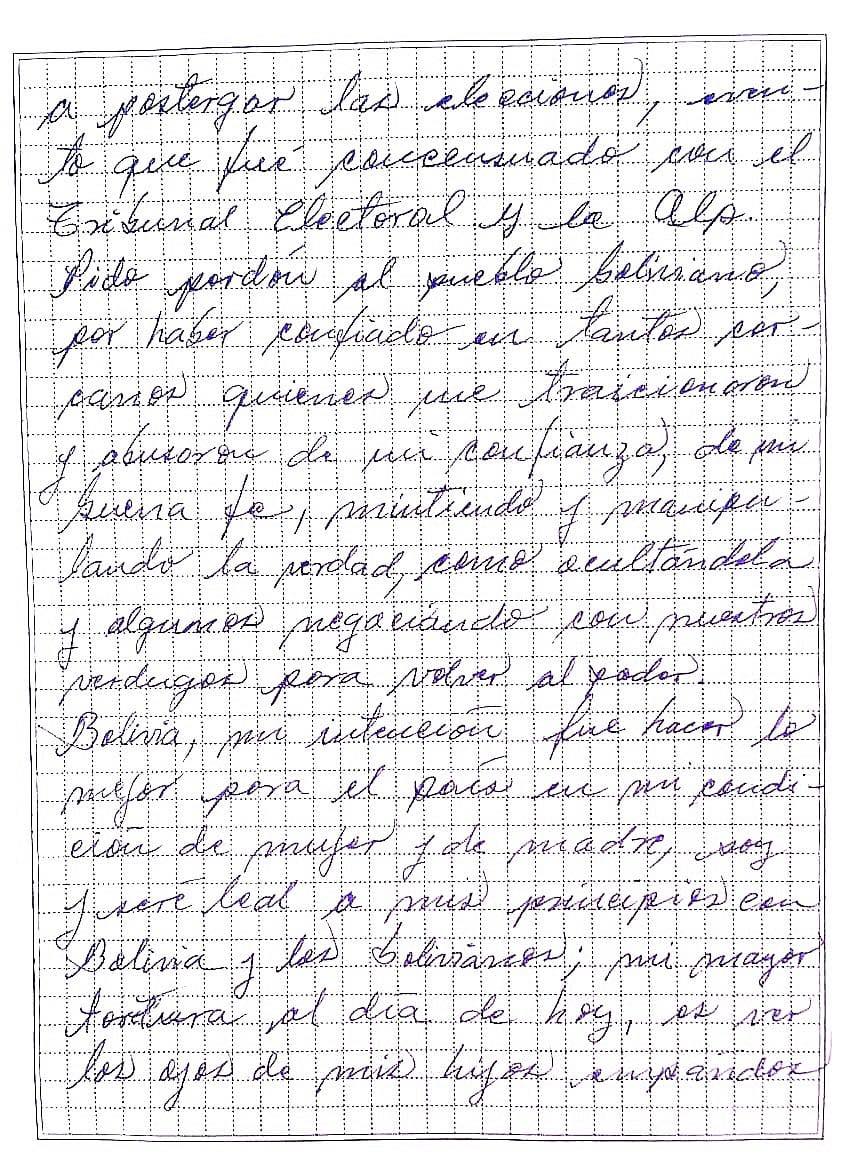 a postergar las elecciones, even-
to que fué concensuado con el
Tribunal Electoral y la Alp.
Pido perdón al pueblo boliviano,
por haber confiado en tantos cer-
canos quienes me traicionaron
y abusaron de mi confianza, de mi
buena fe, mintiendo y manipu-
lando la verdad, como ocultándola
y algunos negociando con nuestros
verdugos para volver al poder.
Bolivia, mi intención fue hacer lo
mejor para el país en mi condi-
ción de mujer y de madre, soy
y seré leal a mis principios con
Bolivia y los bolivianos; mi mayor
tortura al día de hoy, es ver
los ojos de mis hijos empañados